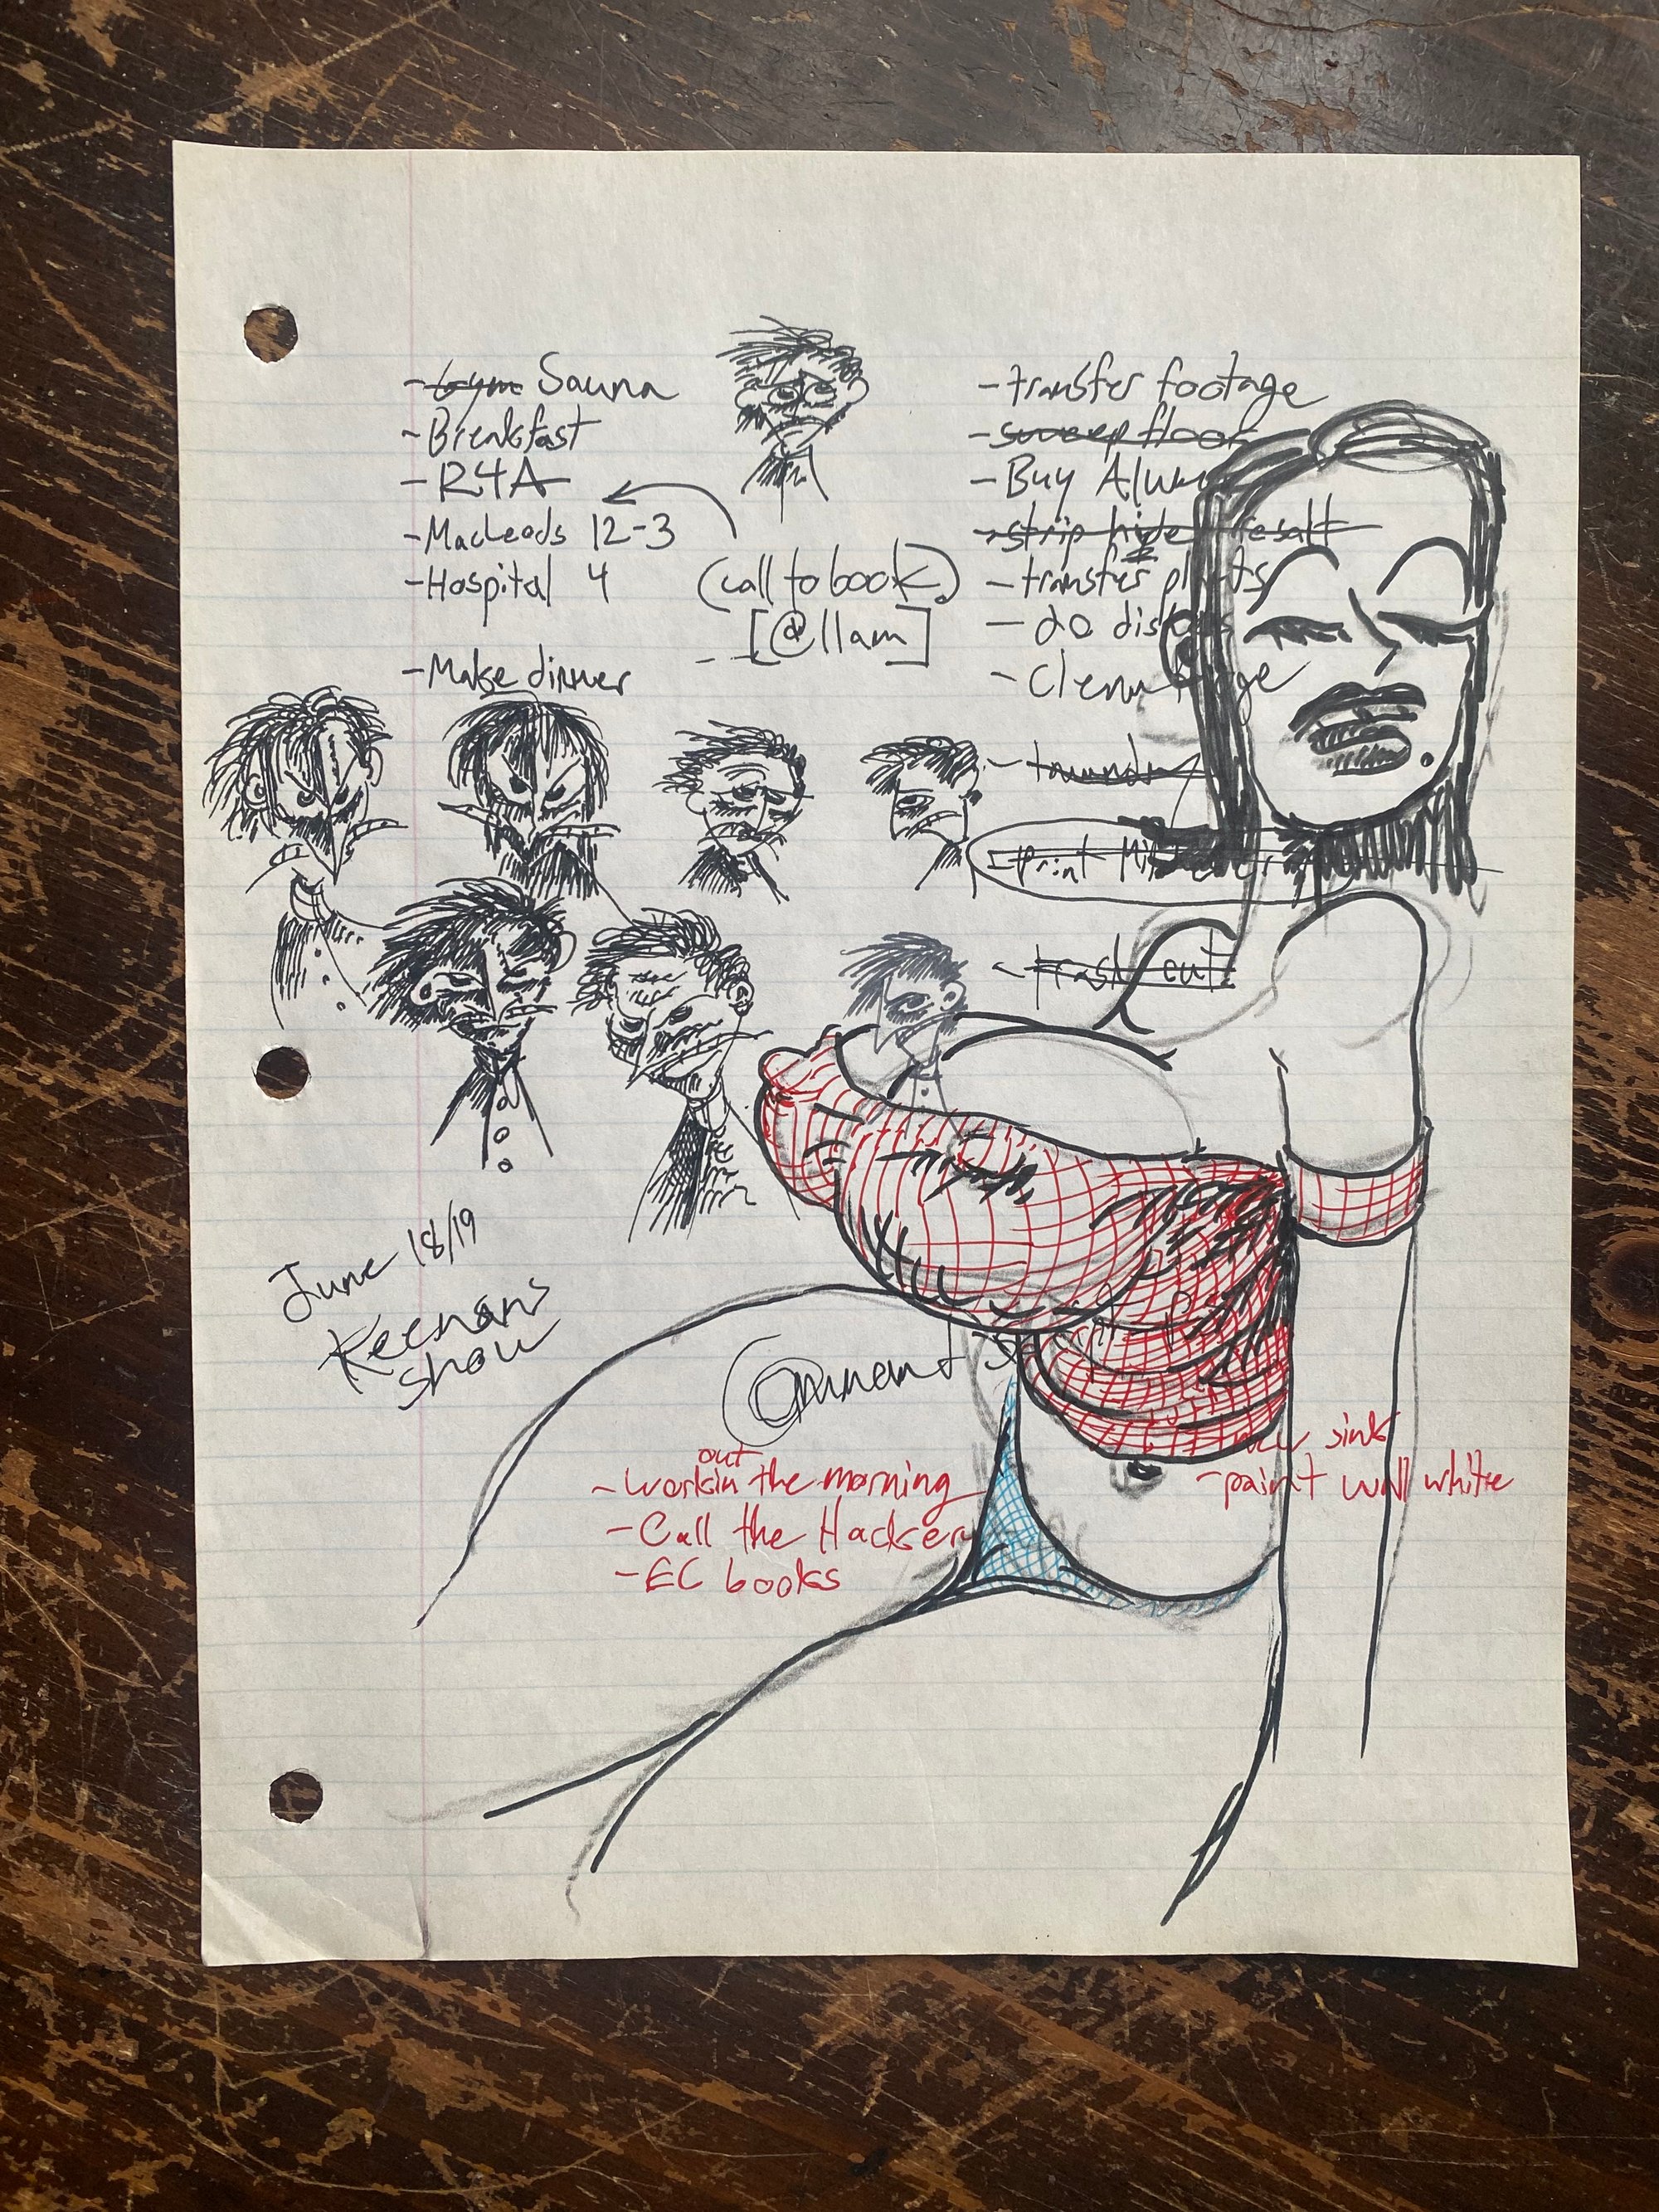 -Gym Sauna
-Breakfast
-R4A
-MacLeods 12-3
-Hospital 4
(call to book)
[@11am]
-Make dinner
-transfer footage
-sweep floor
-Buy
-strip hide resalt
-transfer plants
-do dishes
-Clean
-laundry
-print
-trash out
June 18/19
Keenans
show
Comment
-work out in the morning
-Call the Hacker
-EC books
sink
-paint wall white